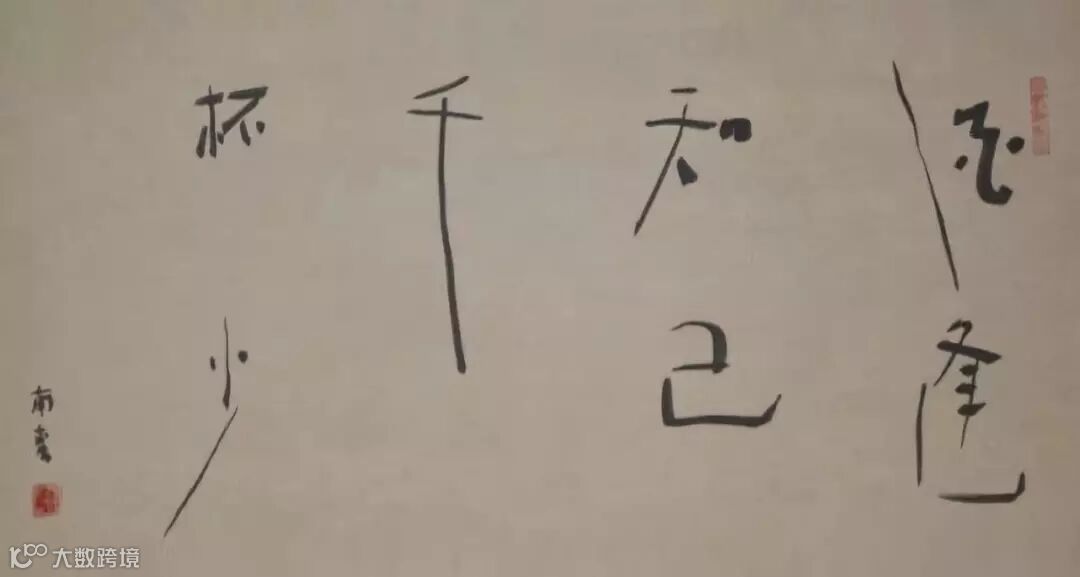 酒逢
知己
千
杯少
南書
大数跨境